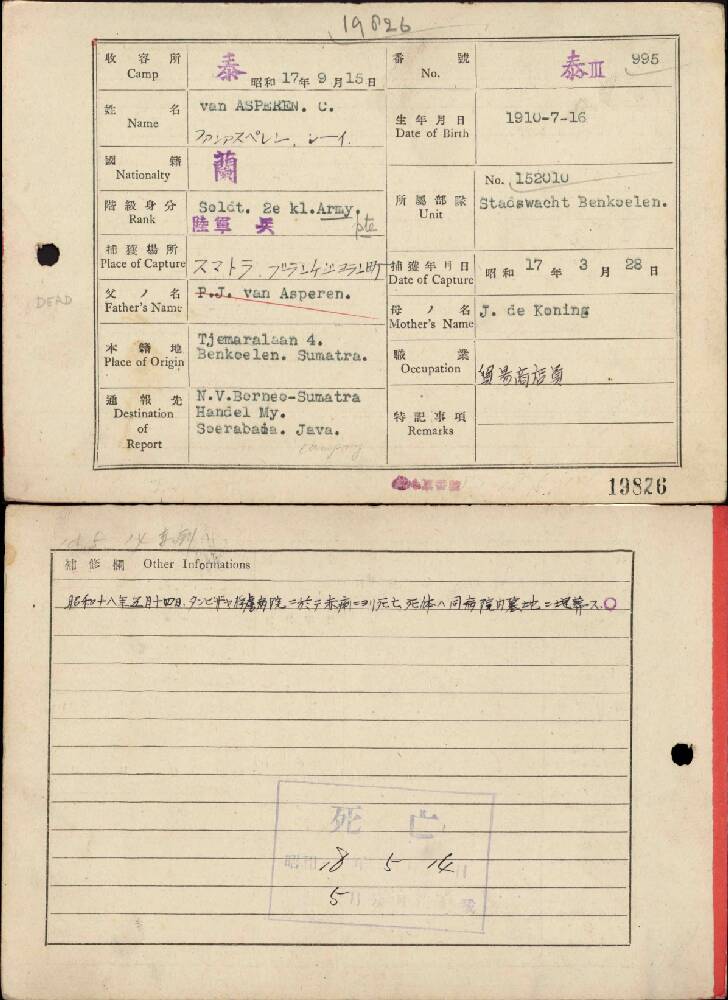 19826
收容所 泰 昭和17年9月15日 番號 泰III 995
Camp No.
姓名 van ASPEREN. C. 生年月日 1910-7-16
Name ファンアスペレン、シーイ Date of Birth
國籍 蘭
Nationalty
No. 152010
階級身分 Soldt. 2e kl.Army. 所屬部隊 Stadswacht Benkoelen.
Rank 陸軍 兵 pte Unit
捕獲場所 スマトラ 捕獲年月日 昭和17年3月28日
Place of Capture Date of Capture
父ノ名 P.J. van Asperen. 母ノ名 J. de Koning
Father's Name Mother's Name
DEAD
本籍地 Tjemaralaan 4. 職業
Place of Origin Benkoelen. Sumatra. Occupation
通報先 N.V.Borneo-Sumatra 特記事項
Destination Handel My. Remarks
of Soerabaia. Java.
Report
19826
補修欄 Other Informations
昭和十八年五月十四日、タンビザヤ俘虜病院ニ於テ赤痢ニヨリ死亡 死体ハ同病院内墓地ニ埋葬ス.
死亡
昭和18年5月14日
5